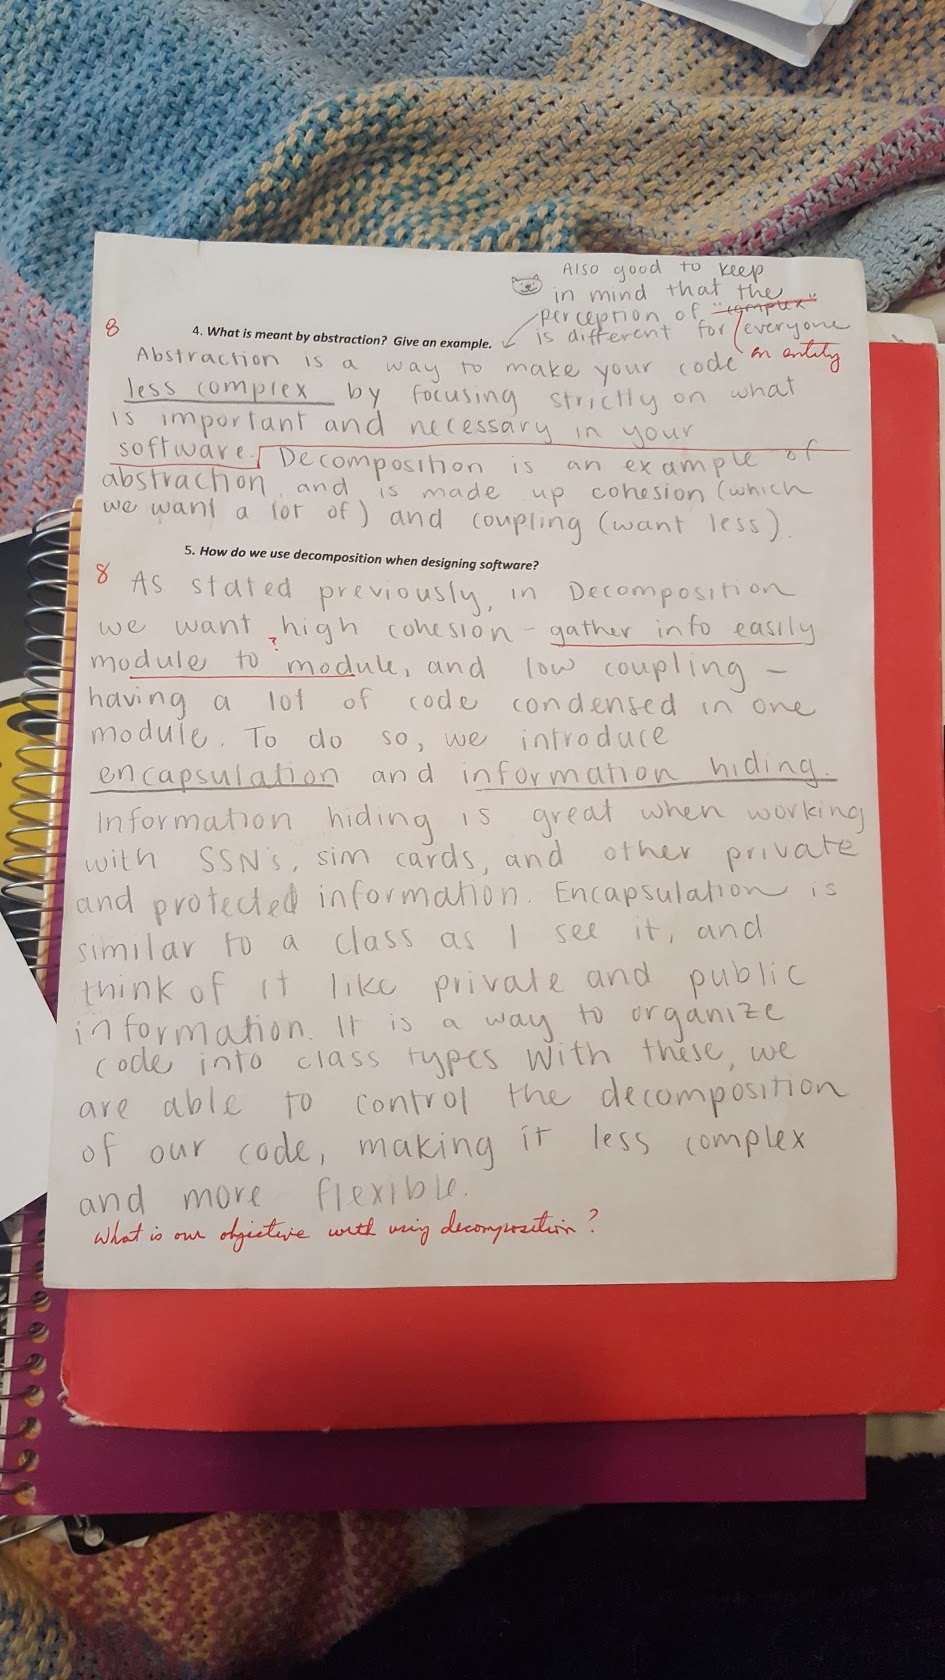 Also good to keep
in mind that the
perception of "complex"
is different for everyone
an entity
8
4. What is meant by abstraction? Give an example.
Abstraction is a way to make your code
less complex by focusing strictly on what
is important and necessary in your
software. Decomposition is an example of
abstraction, and is made up cohesion (which
we want a lot of) and coupling (want less).
5. How do we use decomposition when designing software?
8
As stated previously, in Decomposition
we want high cohesion - gather info easily
?
module to module, and low coupling -
having a lot of code condensed in one
module. To do so, we introduce
encapsulation and information hiding.
Information hiding is great when working
with SSN's, sim cards, and other private
and protected information. Encapsulation is
similar to a class as I see it, and
think of it like private and public
information. It is a way to organize
code into class types With these, we
are able to control the decomposition
of our code, making it less complex
and more flexible.
What is our objective with using decomposition?